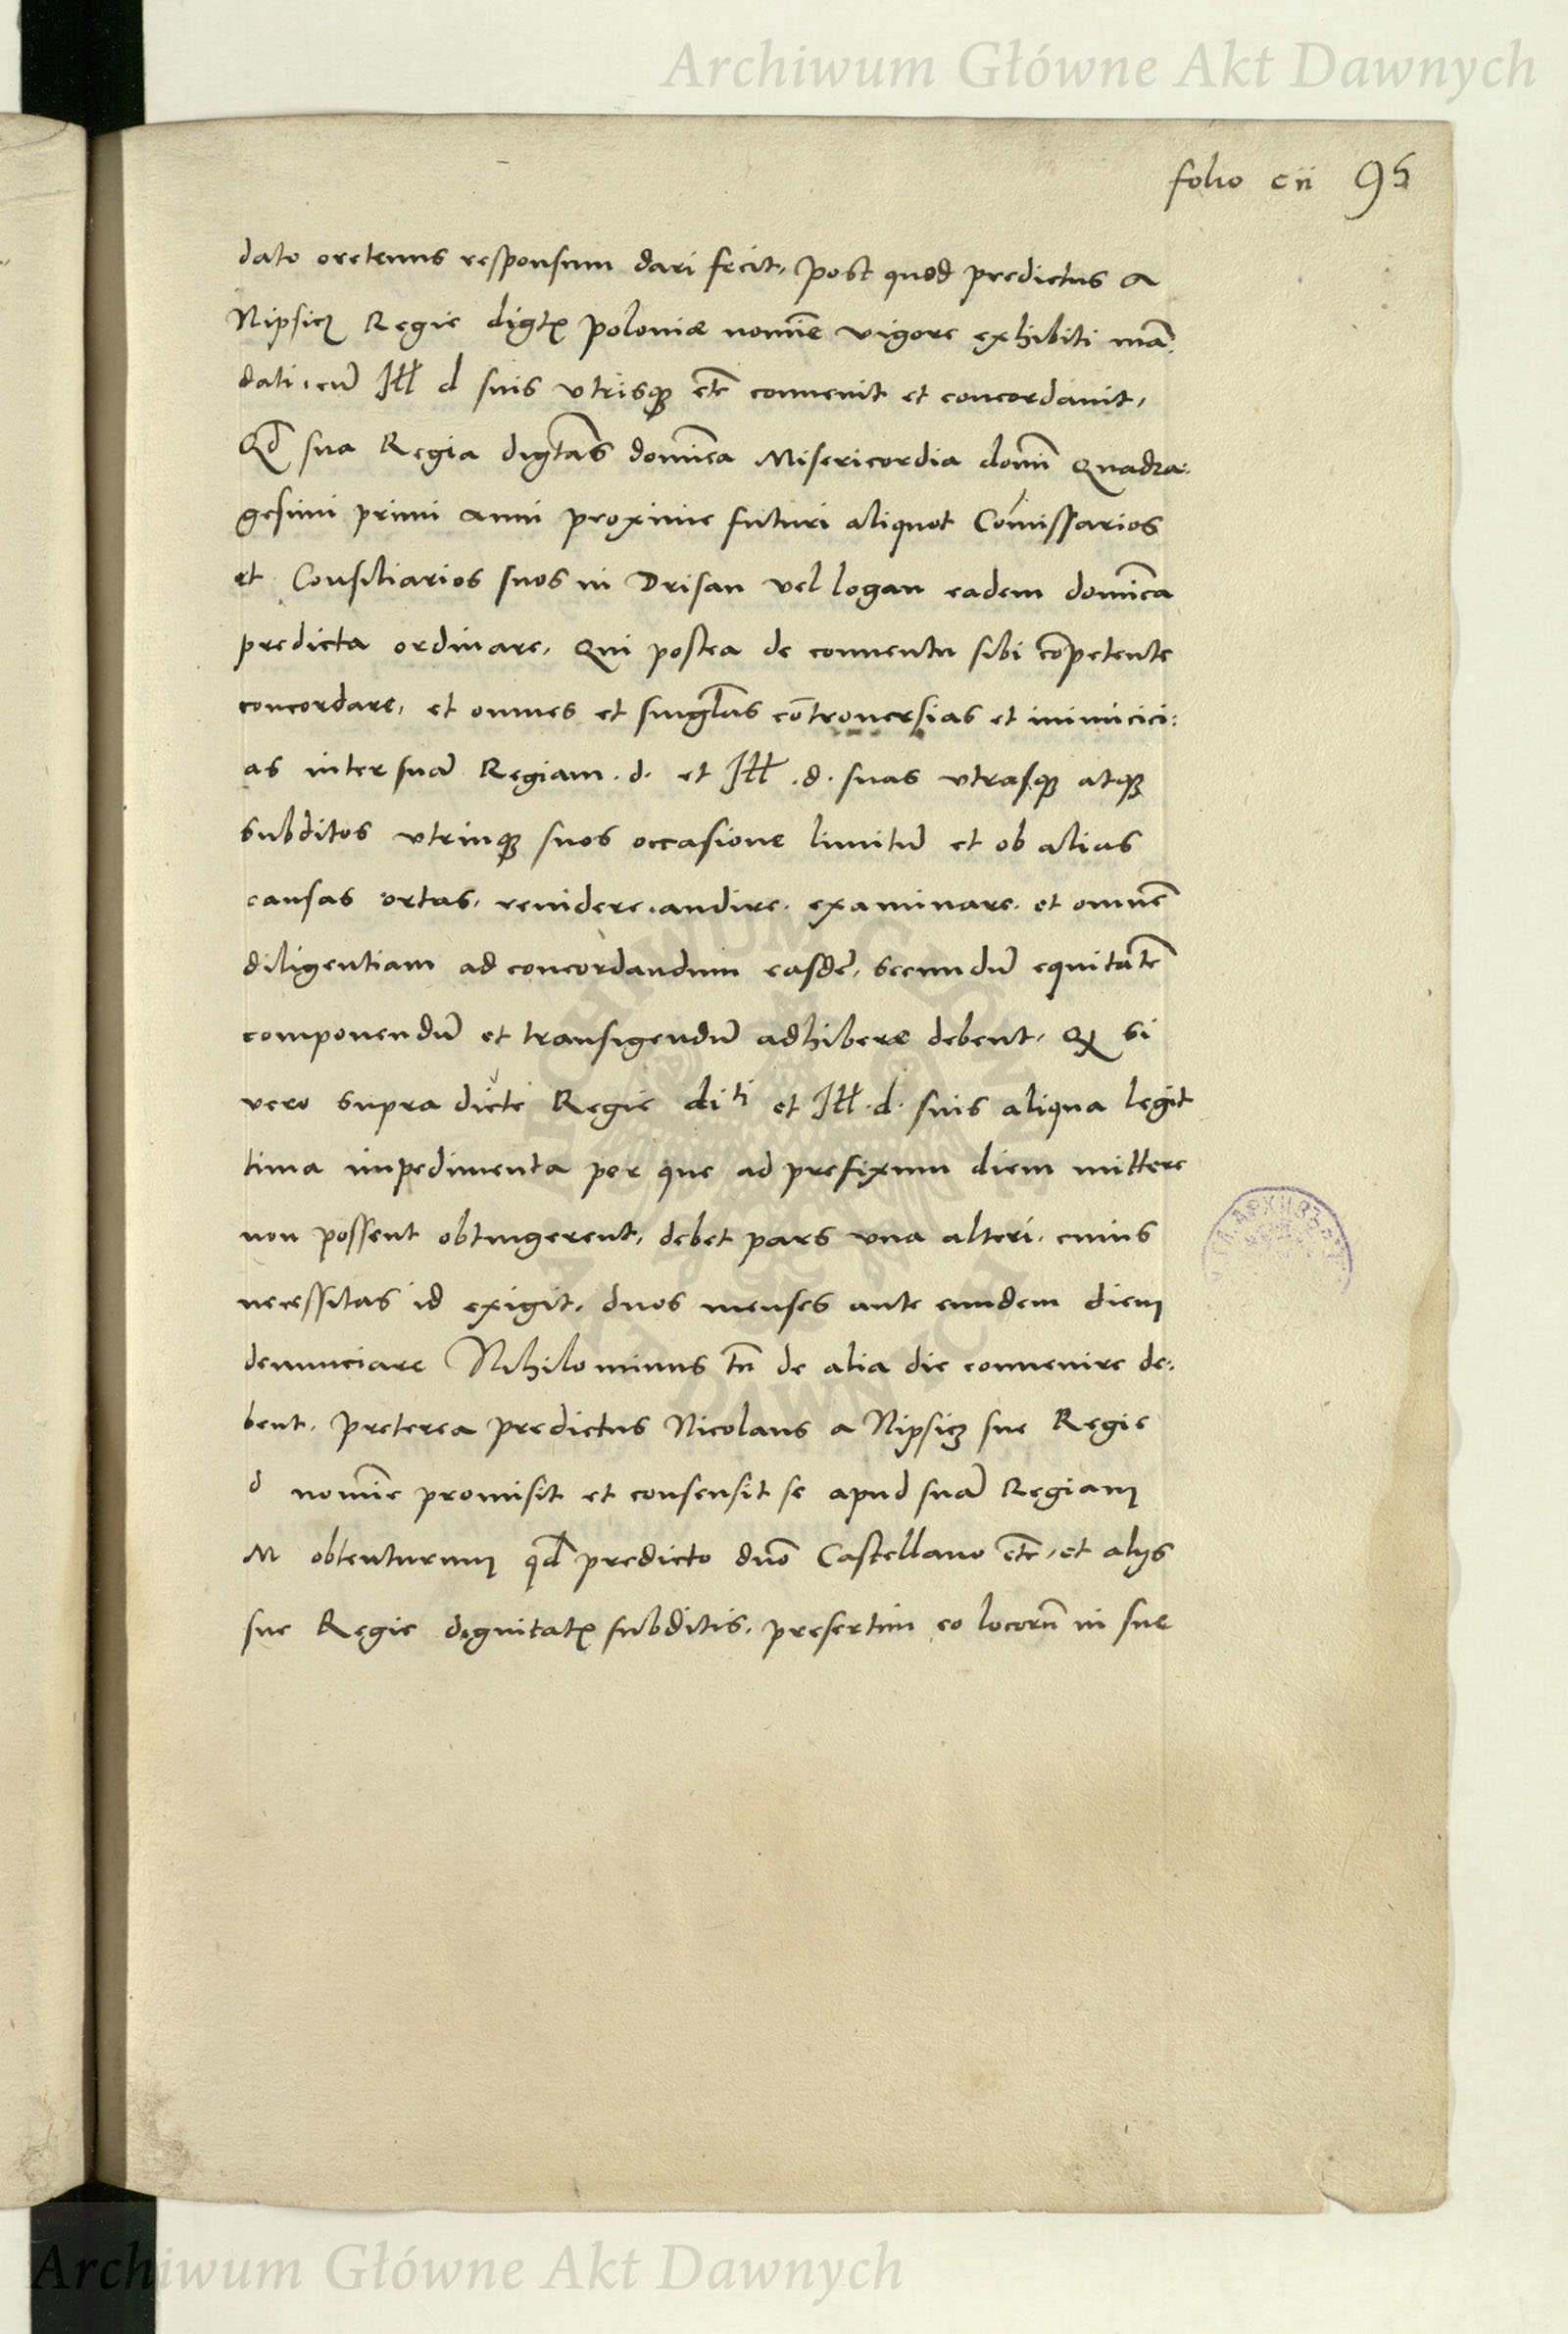 Archiwum Główne Akt Dawnych
folio cii 95
dato oretenus responsum dari fecit, post quod predictus a
Nipsicz Regie digtꝭ poloniæ nomīe vigore exhibiti mā:
dati, cū Jłł d suis vtrisqꝫ etc̄ conuenit et concordauit,
Qđ sua Regia digtās domīca Misericordia domī Quadra:
gesimi primi anni proxime futuri aliquot Com̄issarios
et Consiliarios suos in Drisan vel logan eadem domīca
predicta ordinare, Qui postea de conuentu sibi cōpetente
concordare, et omnes et singlās cōtrouersias et inimicici:
as inter suā Regiam .d. et Jłł .d. suas vtrasqꝫ atqꝫ
subditos vtrinqꝫ suos occasione limitū et ob alias
causas ortas, reuidere, audire, examinare, et omnē
diligentiam ad concordandum easdē, secundū equitatē
componendū et transigendū adhibere debent, Qꝫ si
vero supra dicte Regie diti et Jłł .d. suis aliqua legit
tima impedimenta per que ad prefixum diem mittere
non possent obtingerent, debet pars vna alteri, cuius
necessitas id exigit, duos menses ante eundem diem
denunciare Nihilominus tn̄ de alia die conuenire de:
bent, Preterea predictus Nicolaus a Nipsicz sue Regie
d nomīe promisit et consensit se apud suā Regiam
M obtenturum qđ predicto dnō Castellano etc̄, et alijs
sue Regie dignitatꝭ subditis, presertim eo locorū in sue
Archiwum Główne Akt Dawnych